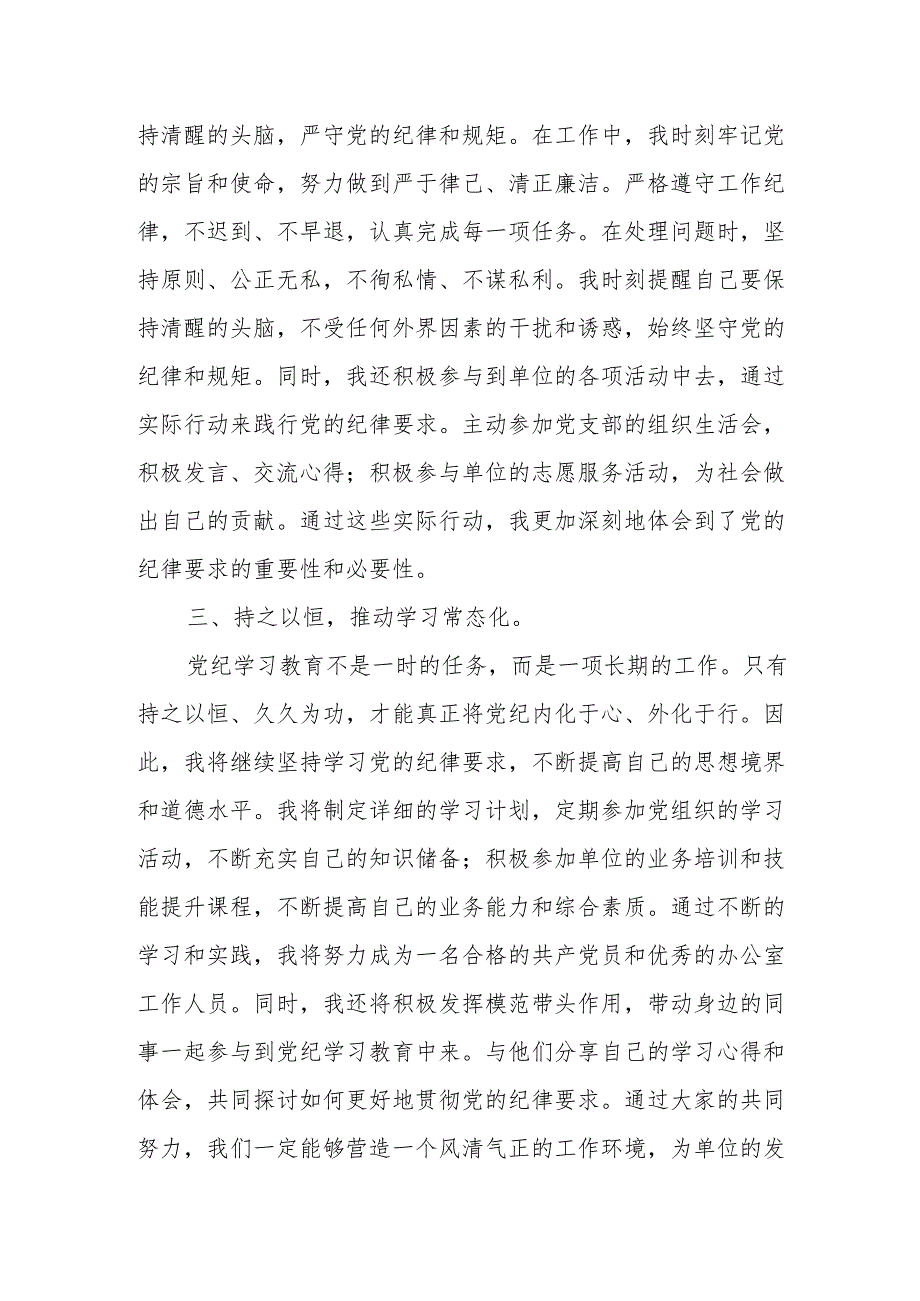 持清醒的头脑，严守党的纪律和规矩。在工作中，我时刻牢记党
的宗旨和使命，努力做到严于律己、清正廉洁。严格遵守工作纪
律，不迟到、不早退，认真完成每一项任务。在处理问题时，坚
持原则、公正无私，不徇私情、不谋私利。我时刻提醒自己要保
持清醒的头脑，不受任何外界因素的干扰和诱惑，始终坚守党的
纪律和规矩。同时，我还积极参与到单位的各项活动中去，通过
实际行动来践行党的纪律要求。主动参加党支部的组织生活会，
积极发言、交流心得；积极参与单位的志愿服务活动，为社会做
出自己的贡献。通过这些实际行动，我更加深刻地体会到了党的
纪律要求的重要性和必要性。
三、持之以恒，推动学习常态化。
党纪学习教育不是一时的任务，而是一项长期的工作。只有
持之以恒、久久为功，才能真正将党纪内化于心、外化于行。因
此，我将继续坚持学习党的纪律要求，不断提高自己的思想境界
和道德水平。我将制定详细的学习计划，定期参加党组织的学习
活动，不断充实自己的知识储备；积极参加单位的业务培训和技
能提升课程，不断提高自己的业务能力和综合素质。通过不断的
学习和实践，我将努力成为一名合格的共产党员和优秀的办公室
工作人员。同时，我还将积极发挥模范带头作用，带动身边的同
事一起参与到党纪学习教育中来。与他们分享自己的学习心得和
体会，共同探讨如何更好地贯彻党的纪律要求。通过大家的共同
努力，我们一定能够营造一个风清气正的工作环境，为单位的发